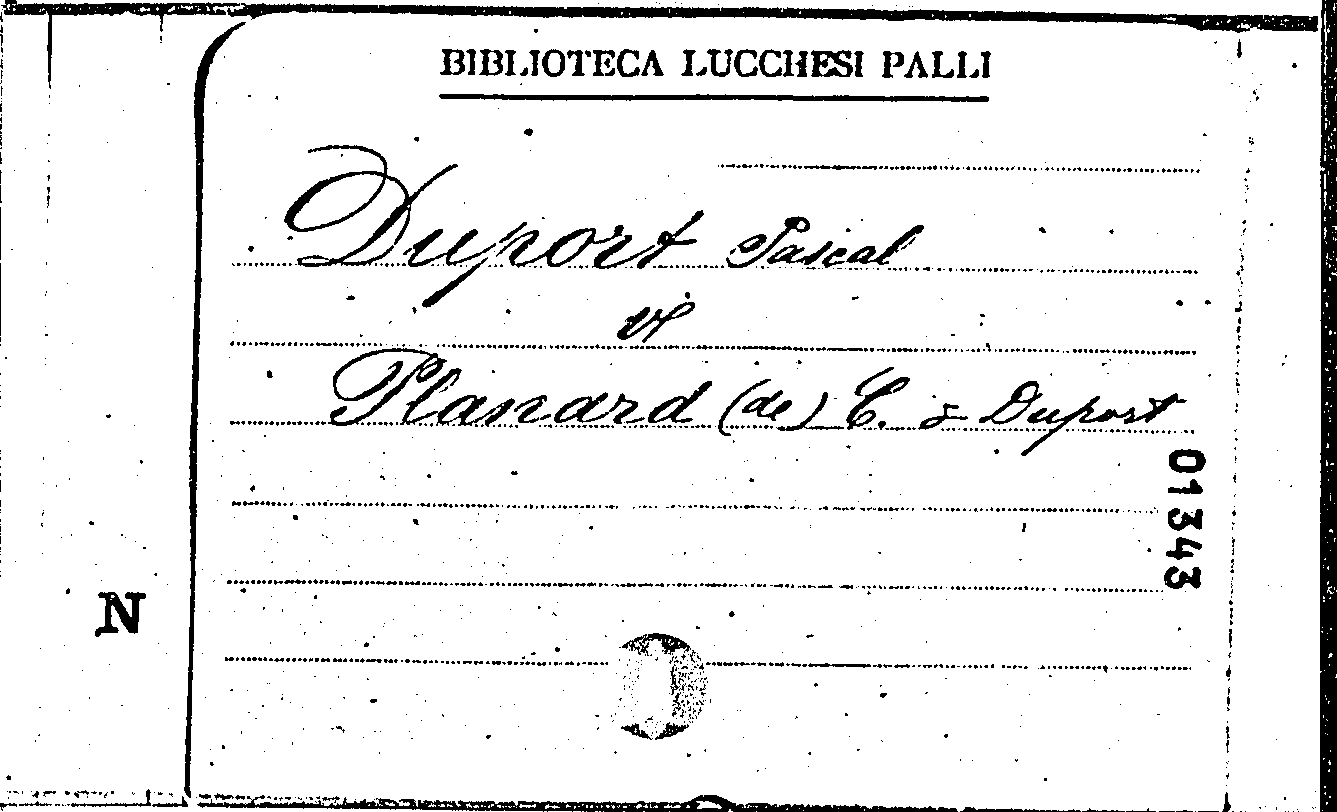 BIBLIOTECA LUCCHESI PALLI
Duport Pascal
vi
Planard (de) C. & Duport
01343
N